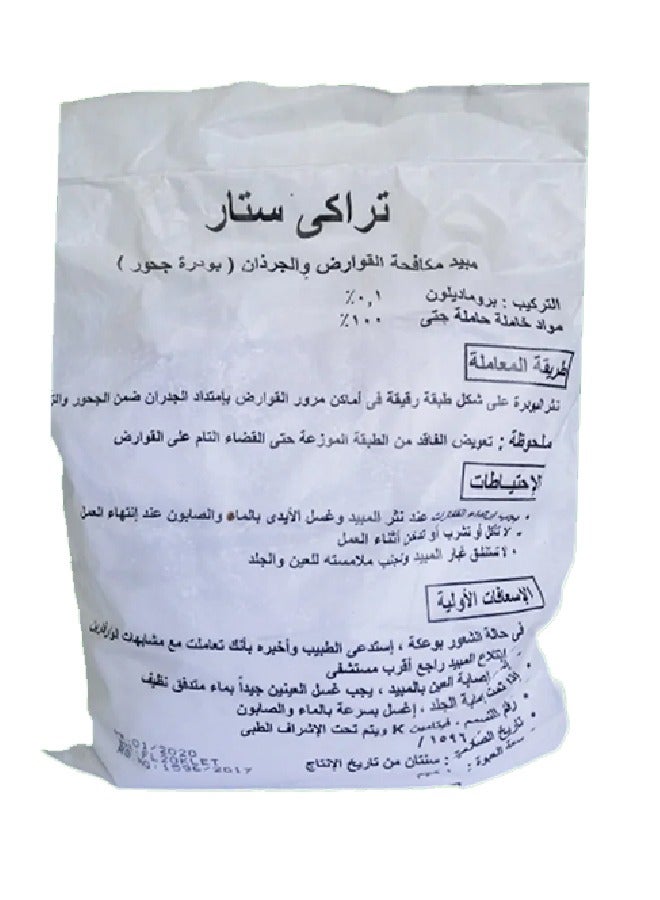 تراكى ستار
مبيد مكافحة القوارض والجرذان ( بودرة جحور )
التركيب : بروماديلون ٠,١٪
مواد خاملة حاملة حتى ١٠٠٪
طريقة المعاملة
نثر البودرة على شكل طبقة رقيقة فى أماكن مرور القوارض بإمتداد الجدران ضمن الجحور
ملحوظة : تعويض الفاقد من الطبقة الموزعة حتى القضاء التام على القوارض
الإحتياطات
• يجب إرتداء القفازات عند نثر المبيد وغسل الأيدى بالماء والصابون عند إنتهاء العمل
- لا تأكل أو تشرب أو تدخن أثناء العمل
• لا تستنشق غبار المبيد وتجنب ملامسته للعين والجلد
الإسعافات الأولية
فى حالة الشعور بوعكة ، إستدعى الطبيب وأخبره بأنك تعاملت مع مشابهات الوارفارين
إبتلاع المبيد راجع أقرب مستشفى
إصابة العين بالمبيد ، يجب غسل العينين جيداً بماء متدفق نظيف
إذا تمت إصابة الجلد ، إغسل بسرعة بالماء والصابون
• رقم التسمم ، فيتامين K ويتم تحت الإشراف الطبى
١٥٩٦ /
• تاريخ الصلاحية : سنتان من تاريخ الإنتاج
سعة العبوة :
01/2020
1596/2017